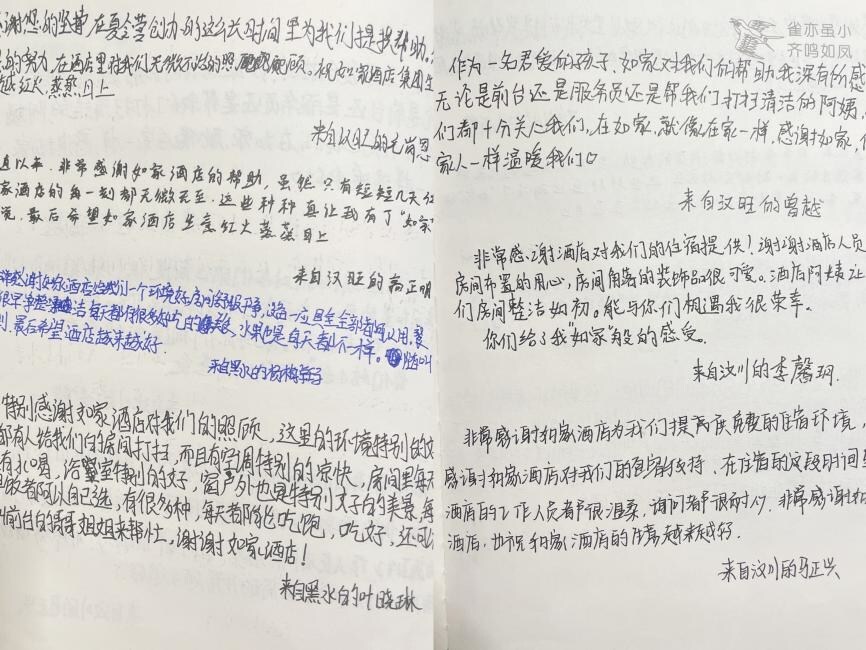 谢您的坚善在夏令营创办的这么长时间里为我们提供帮助,
的努力,在酒店里对我们无微不至的照顾。祝如家酒店集团生
越红火蒸蒸日上
来自汉旺的
直以来,非常感谢如家酒店的帮助,虽然只有短短几天
家酒店的每一刻都无微不至,这些种种真让我有了“如家”
觉,最后希望如家酒店生意红火蒸蒸日上
来自汉旺的高正明
非常感谢如家酒店给我们一个环境好
每天都有很多好吃的,水果也是每天都不一样。随叫
到,最后希望酒店越来越好
来自黑水的杨梅
特别感谢如家酒店对我们的照顾,这里的环境特别的好
都有人给我们的房间打扫,而且有空调特别的凉快,房间里每天
有喝,浴室特别的好,窗户外也是特别好的美景,每
饭都可以自己选,有很多种,每天都能吃饱,吃好,还可以
叫前台的哥哥姐姐来帮忙,谢谢如家酒店!
来自黑水的叶晓琳
雀亦虽小
齐鸣如凤
作为一名君爱的孩子,如家对我们的帮助我深有的感
无论是前台还是服务员还是帮我们打扫清洁的阿姨,
们都十分关心我们,在如家,就像在家一样,感谢如家,
家人一样温暖我们♡
来自汉旺的曾越
非常感谢酒店对我们的住宿提供!谢谢酒店人员
房间布置的用心,房间角落的装饰品很可爱。酒店阿姨让
们房间整洁如初。能与你们相遇我很荣幸。
你们给了我“如家”般的感受。
来自汶川的李馨玥
非常感谢和家酒店为我们提高质免费的住宿环境,
感谢和家酒店对我们的包容与支持,在住宿的这段时间里
酒店的工作人员都很温柔,询问者都很耐心,非常感谢和
酒店,也祝和家酒店的生意越来越好.
来自汶川的马正兴